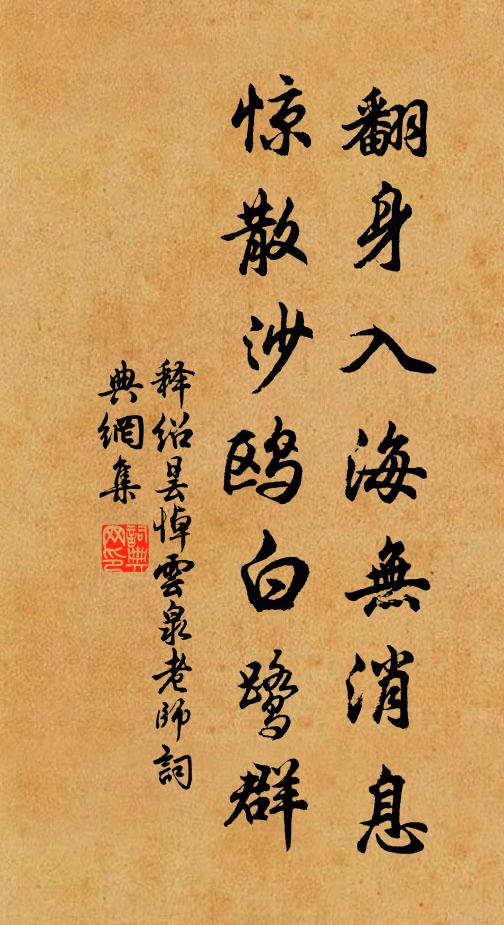 翻身入海無消息
惊散沙鸥白鹭群
释绍昙悼雲泉老師詞
典網集
詞典
网印